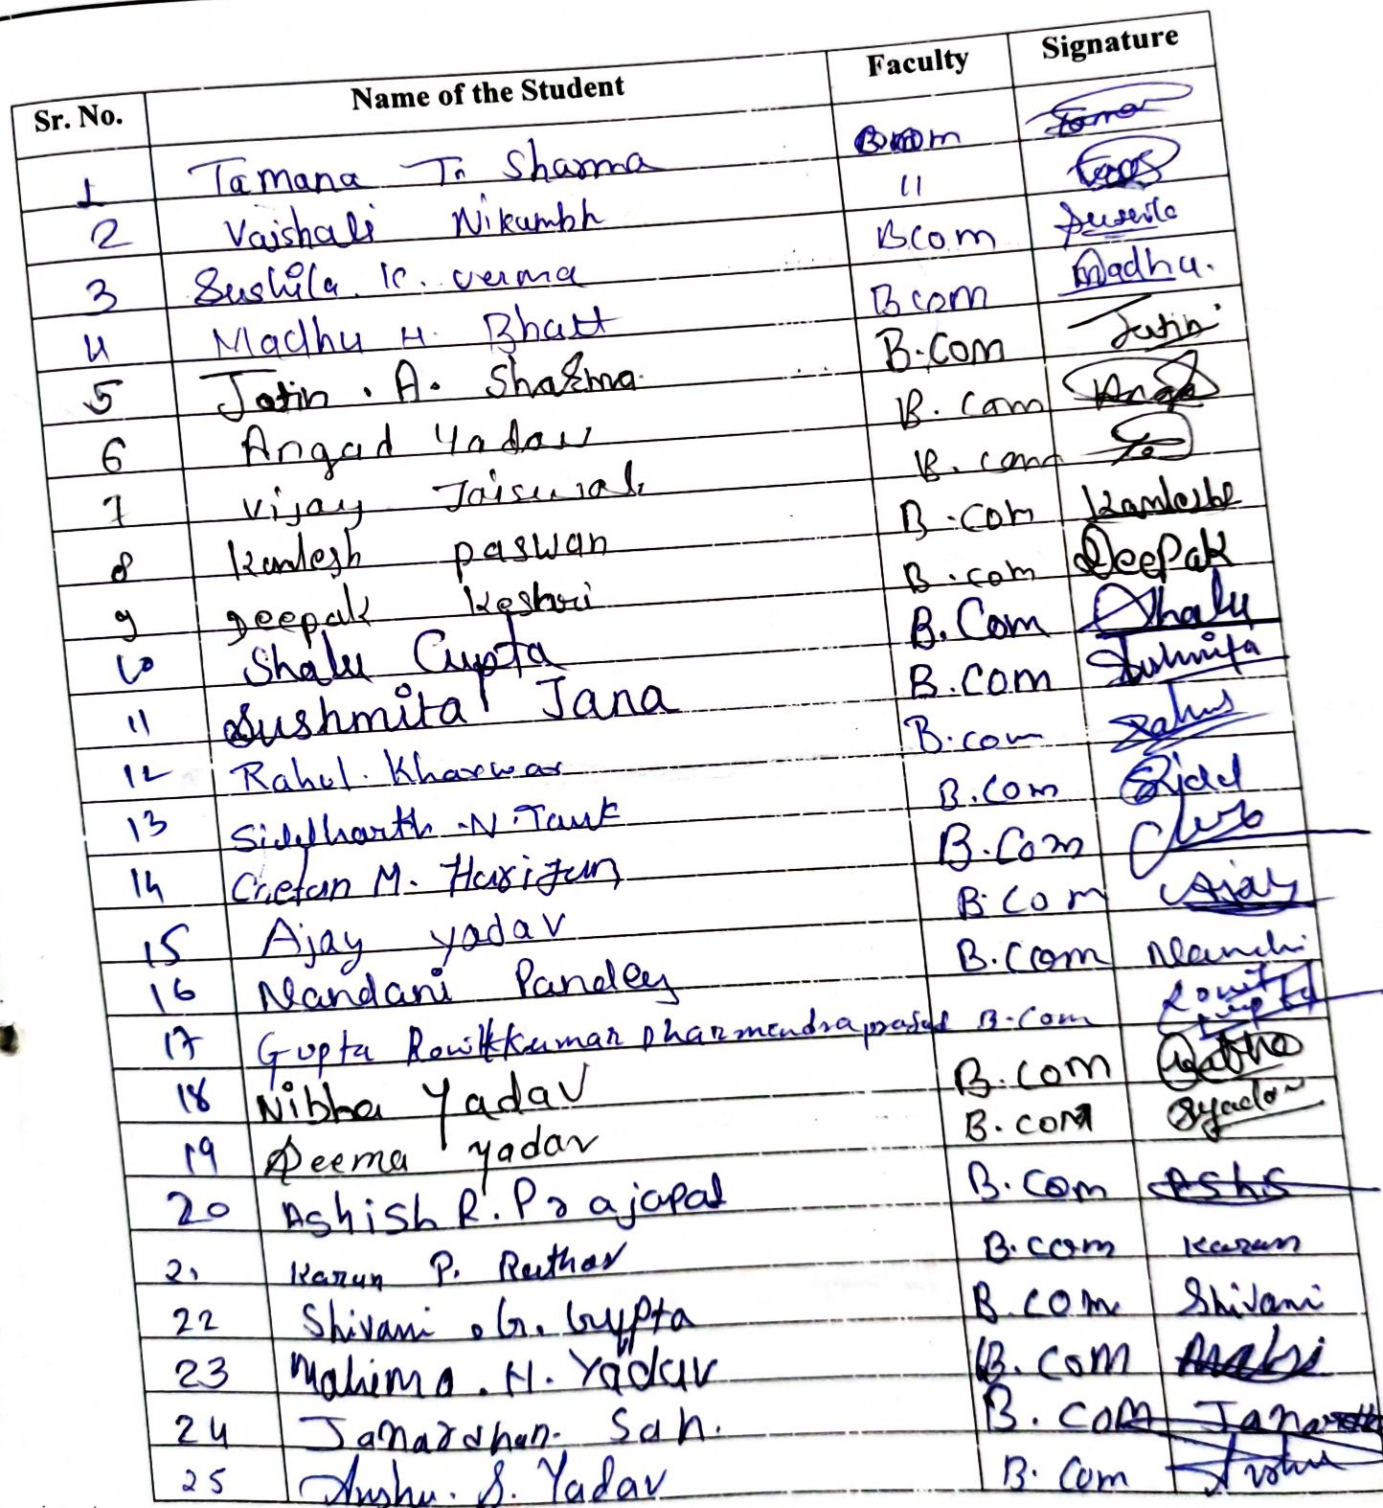 Sr. No. Name of the Student Faculty Signature
1 Tamana T. Sharma Bcom
2 Vaishali Nikumbh 11
3 Sushila. K. verma Bcom
4 Madhu H. Bhatt Bcom Madhu.
5 Jatin . A. Sharma B.Com Jatin
6 Angad Yadav B. Com
7 Vijay Jaiswal B. com
8 Kamlesh paswan B.com Kamlesh
9 Deepak Keshri B.com Deepak
10 Shalu Gupta B.Com Shalu
11 Sushmita Jana B.Com Sushmita
12 Rahul. Kharwar B.com Rahul
13 Siddharth .N. Tank B.Com Sidd
14 Chetan M. Harijan B.Com
15 Ajay yadav B.Com Ajay
16 Nandani Pandey B.Com
17 Gupta Ronitkumar Dharmendraprasad B.Com Ronit Gupta
18 Nibha Yadav B.Com
19 Seema yadav B.com Syadav
20 Ashish R. Prajapat B.Com
21 Karan P. Rathor B.com Karan
22 Shivani .G. Gupta B.Com Shivani
23 Mahima. H. Yadav B.Com
24 Janardhan. Sah. B.Com
25 Anshu. S. Yadav B.Com Anshu